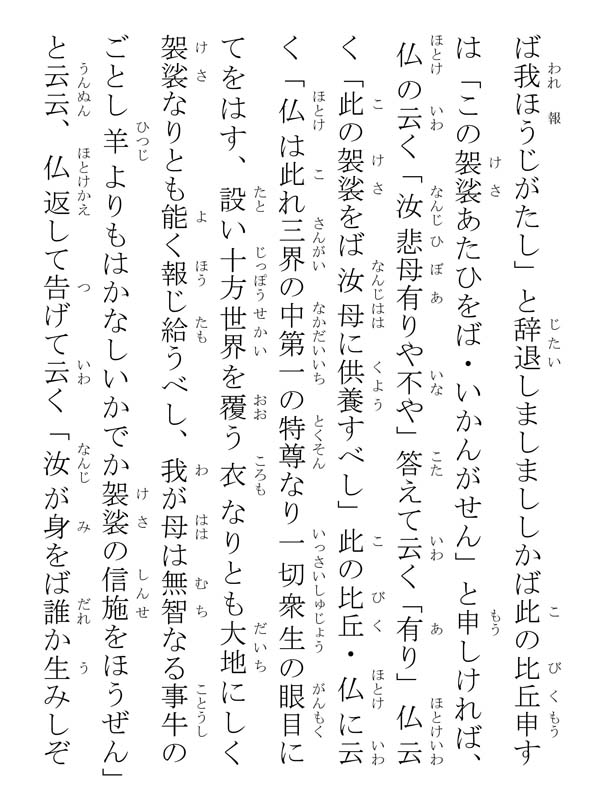 ば我ほうじがたし」と辞退しましまししかば此の比丘申す
は「この袈裟あたひをば・いかんがせん」と申しければ、
仏の云く「汝悲母有りや不や」答えて云く「有り」仏云
く「此の袈裟をば汝母に供養すべし」此の比丘・仏に云
く「仏は此れ三界の中第一の特尊なり一切衆生の眼目に
てをはす、設い十方世界を覆う衣なりとも大地にしく
袈裟なりとも能く報じ給うべし、我が母は無智なる事牛の
ごとし羊よりもはかなしいかでか袈裟の信施をほうぜん」
と云云、仏返して告げて云く「汝が身をば誰か生みしぞ